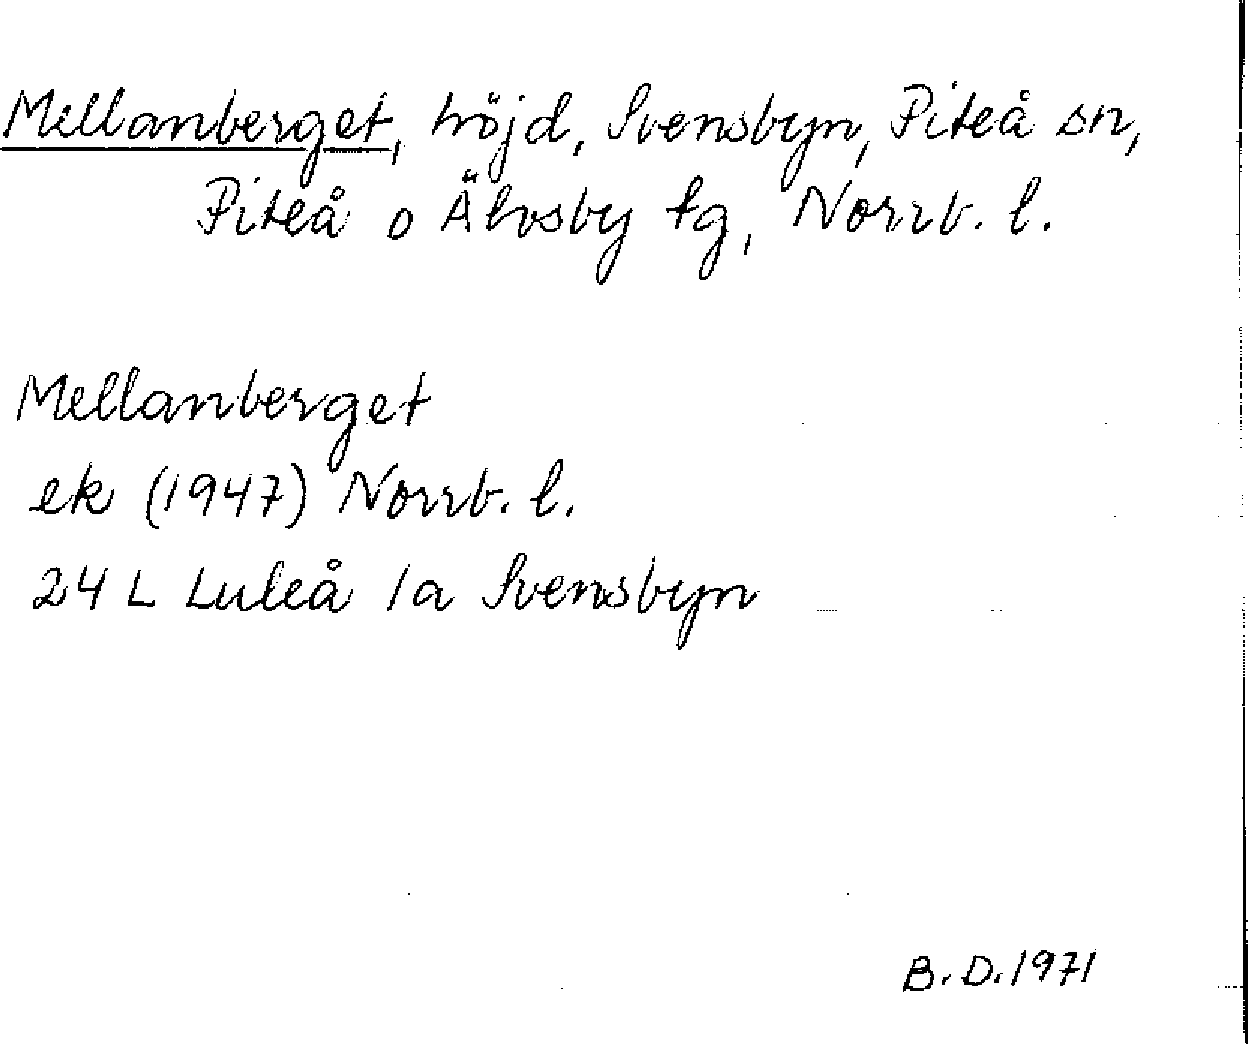 Mellanberget, höjd, Svensbyn, Piteå sn,
Piteå o Älvsby tg, Norrb. l.
Mellanberget
ek (1947) Norrb. l.
24 L Luleå 1a Svensbyn
B.D.1971